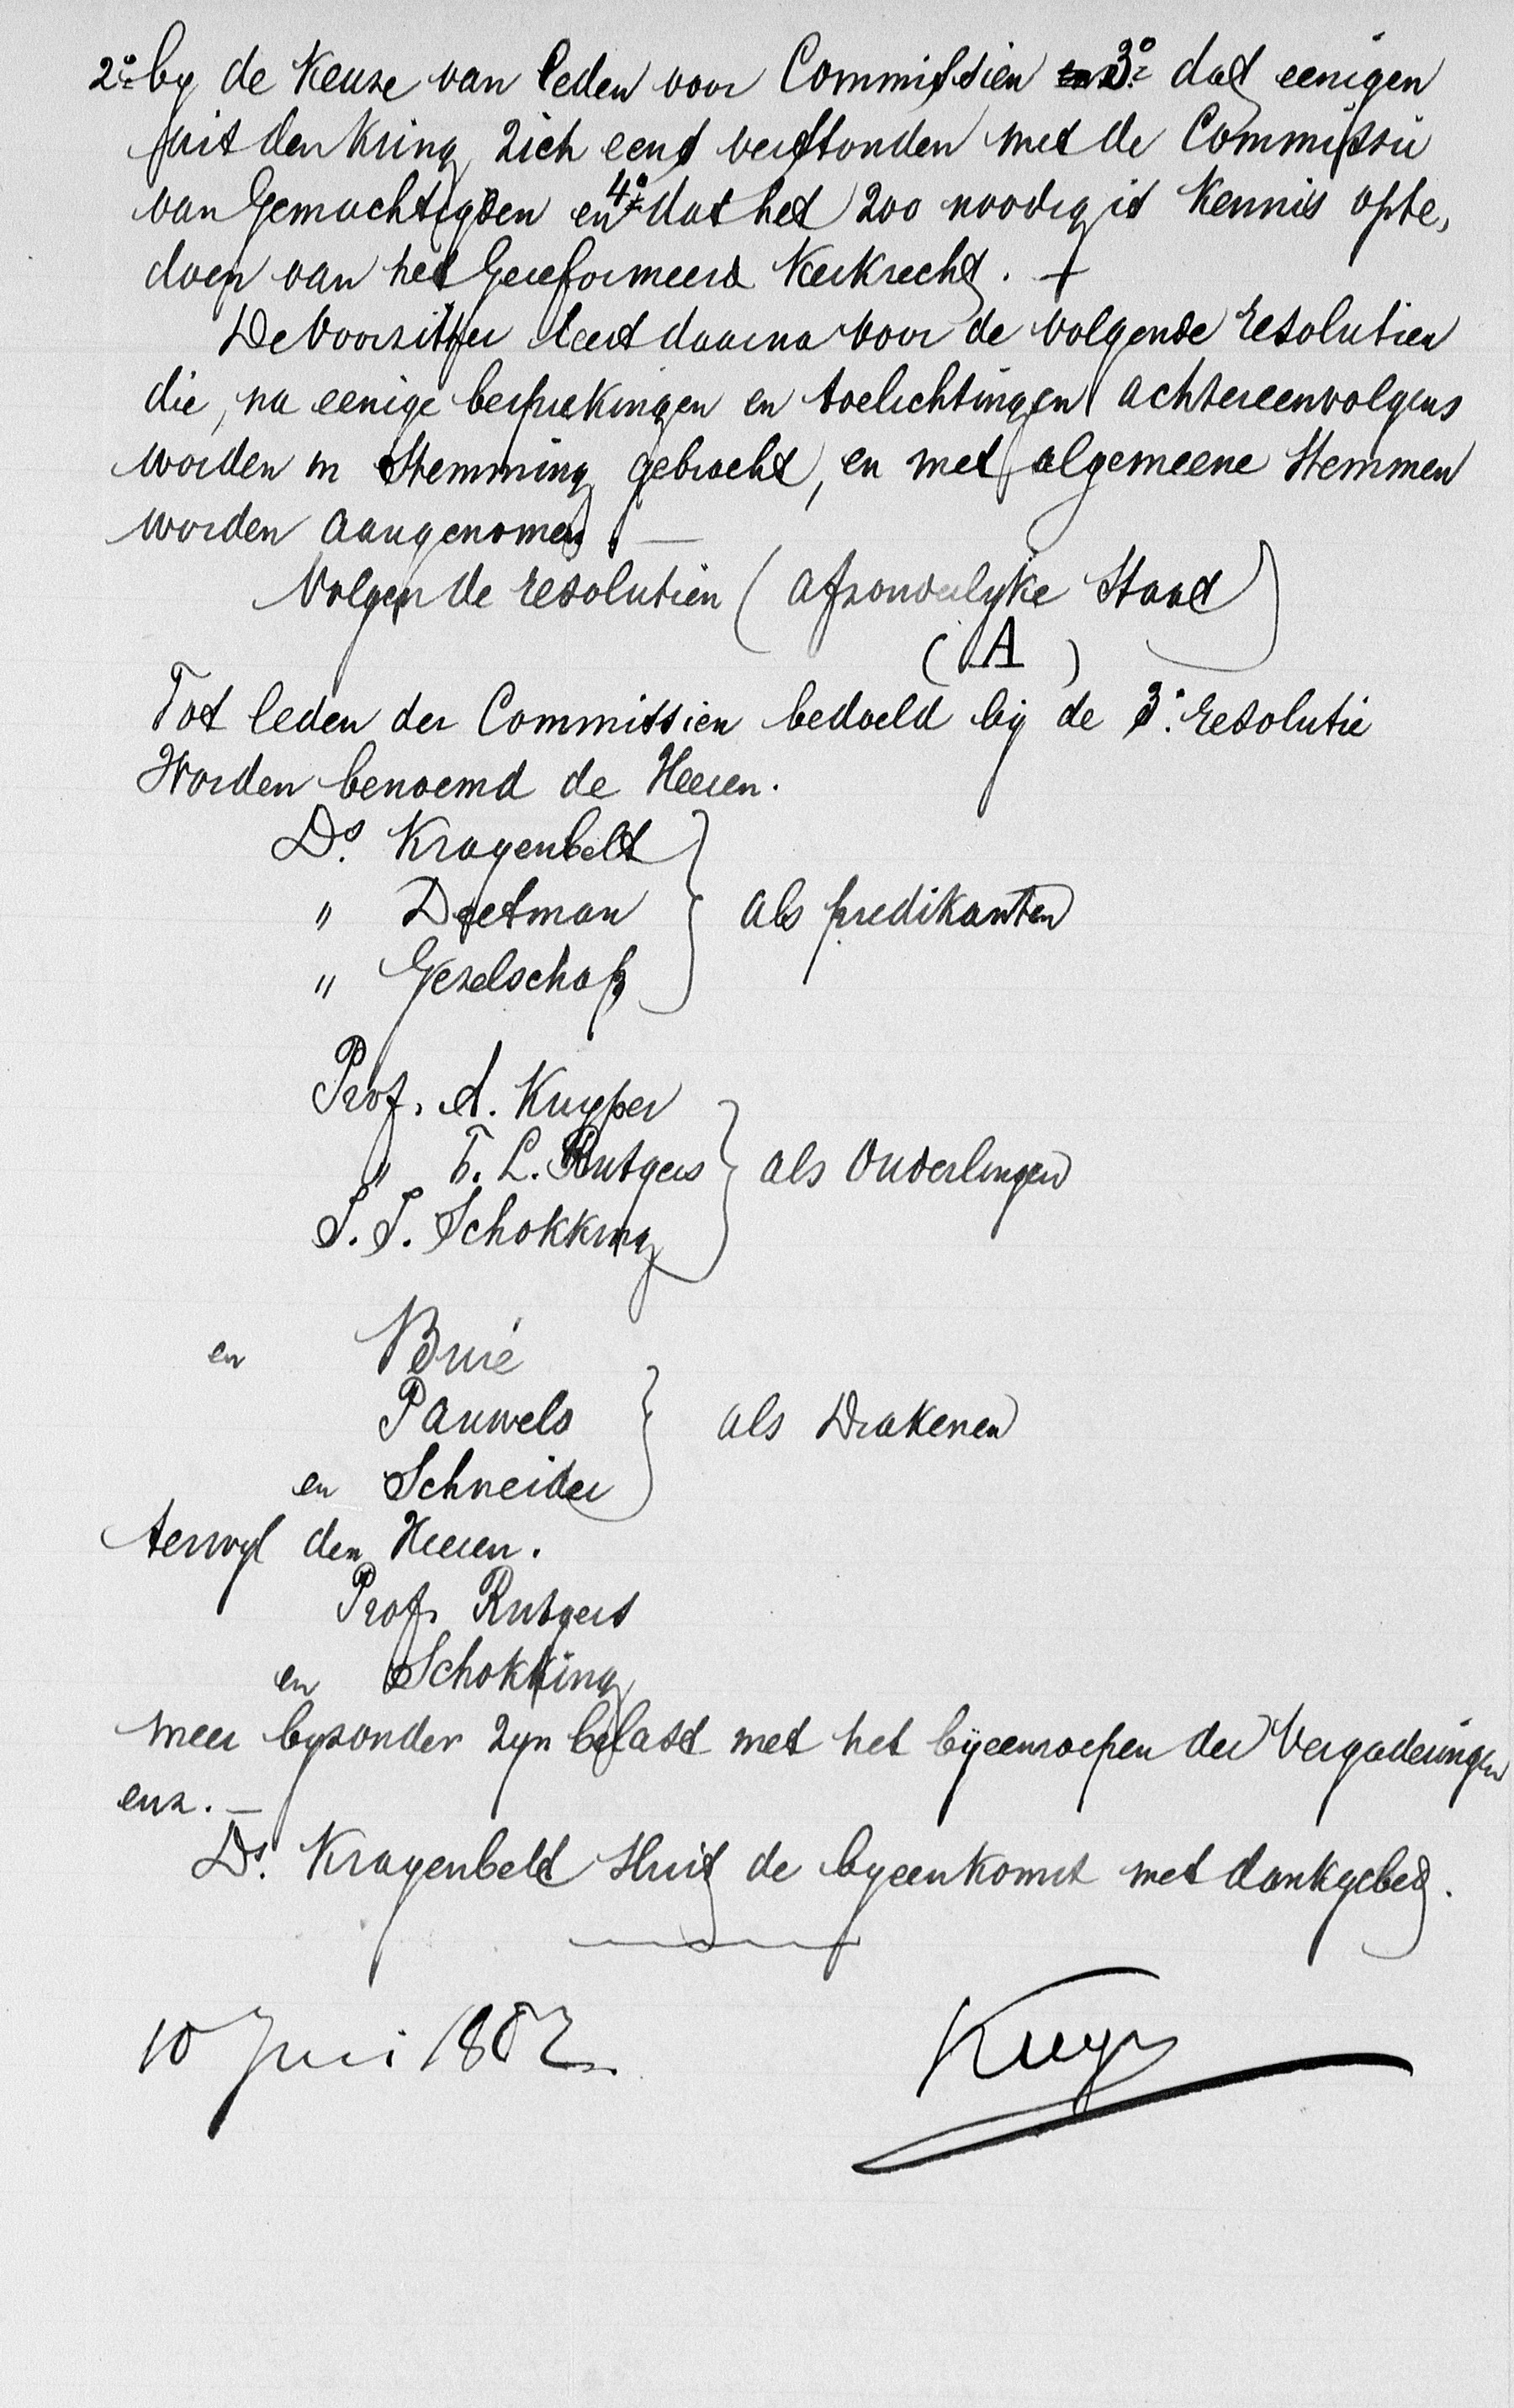 2o by de Keuze van leden voor Commissien 3o dat eenigen
uit den Kring zich eens verstonden met de Commissie
van Gemachtigden en 4o dat het zoo noodig is Kennis opte,
doen van het Gereformeerd Kerkrecht. +
De Voorzitter leest daarna voor de volgende resolutien
die, na eenige besprekingen en toelichtingen achtereenvolgens
worden in Stemming gebracht, en met algemeene Stemmen
worden aangenomen. —
Volgen de resolutien (afzonderlyke Staat)
(A)
Tot leden der Commissien bedoeld bij de 3e. resolutie
Worden benoemd de Heeren.
Ds. Kragenbelt
" Deetman
" Gezelschap
als predikanten
Prof. A. Kuyper
" F. L. Rutgers
S. S. Schokking
als Ouderlingen
en Brié
Pauwels
en Schneider
als Diakenen
terwyl den Heeren.
Prof. Rutgers
en Schokking
meer byzonder zyn belast met het bijeenroepen der Vergaderingen
enz. —
Ds. Kragenbelt sluit de byeenkomst met dankgebed.
10 Juni 1882
Kuyper